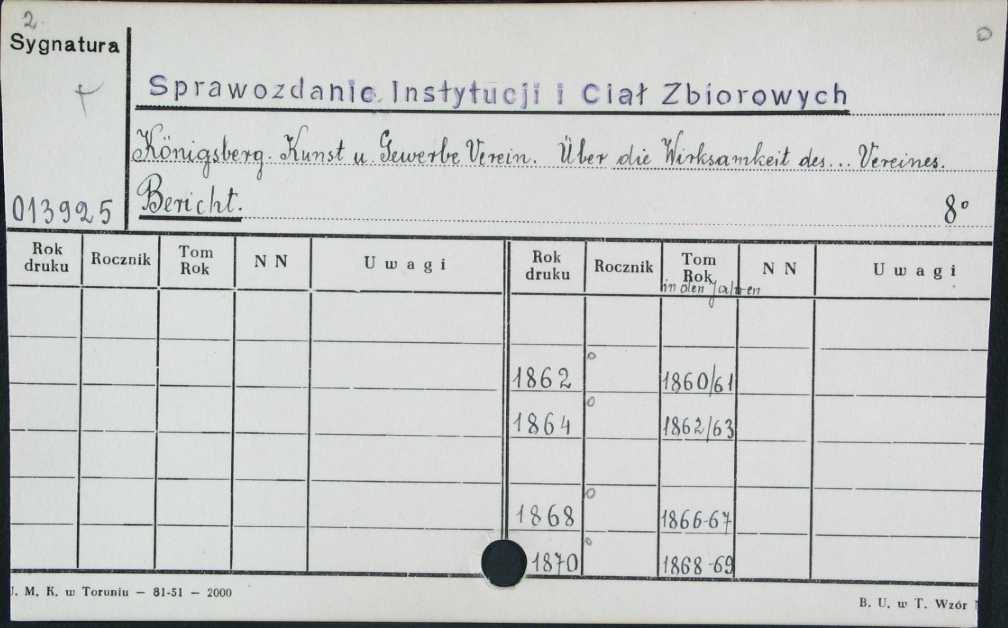 2.
Sygnatura
Sprawozdanie Instytucji i Ciał Zbiorowych
Königsberg. Kunst u. Gewerbe Verein. Über die Wirksamkeit des... Vereines.
013925 Bericht. 8°
Rok druku Rocznik Tom Rok N N Uwagi Rok druku Rocznik Tom Rok N N Uwagi
in den Jahren
1862 ° 1860/61
1864 ° 1862/63
1868 ° 1866-67
1870 ° 1868-69
J. M. K. w Toruniu — 81-51 — 2000
B. U. w T. Wzór